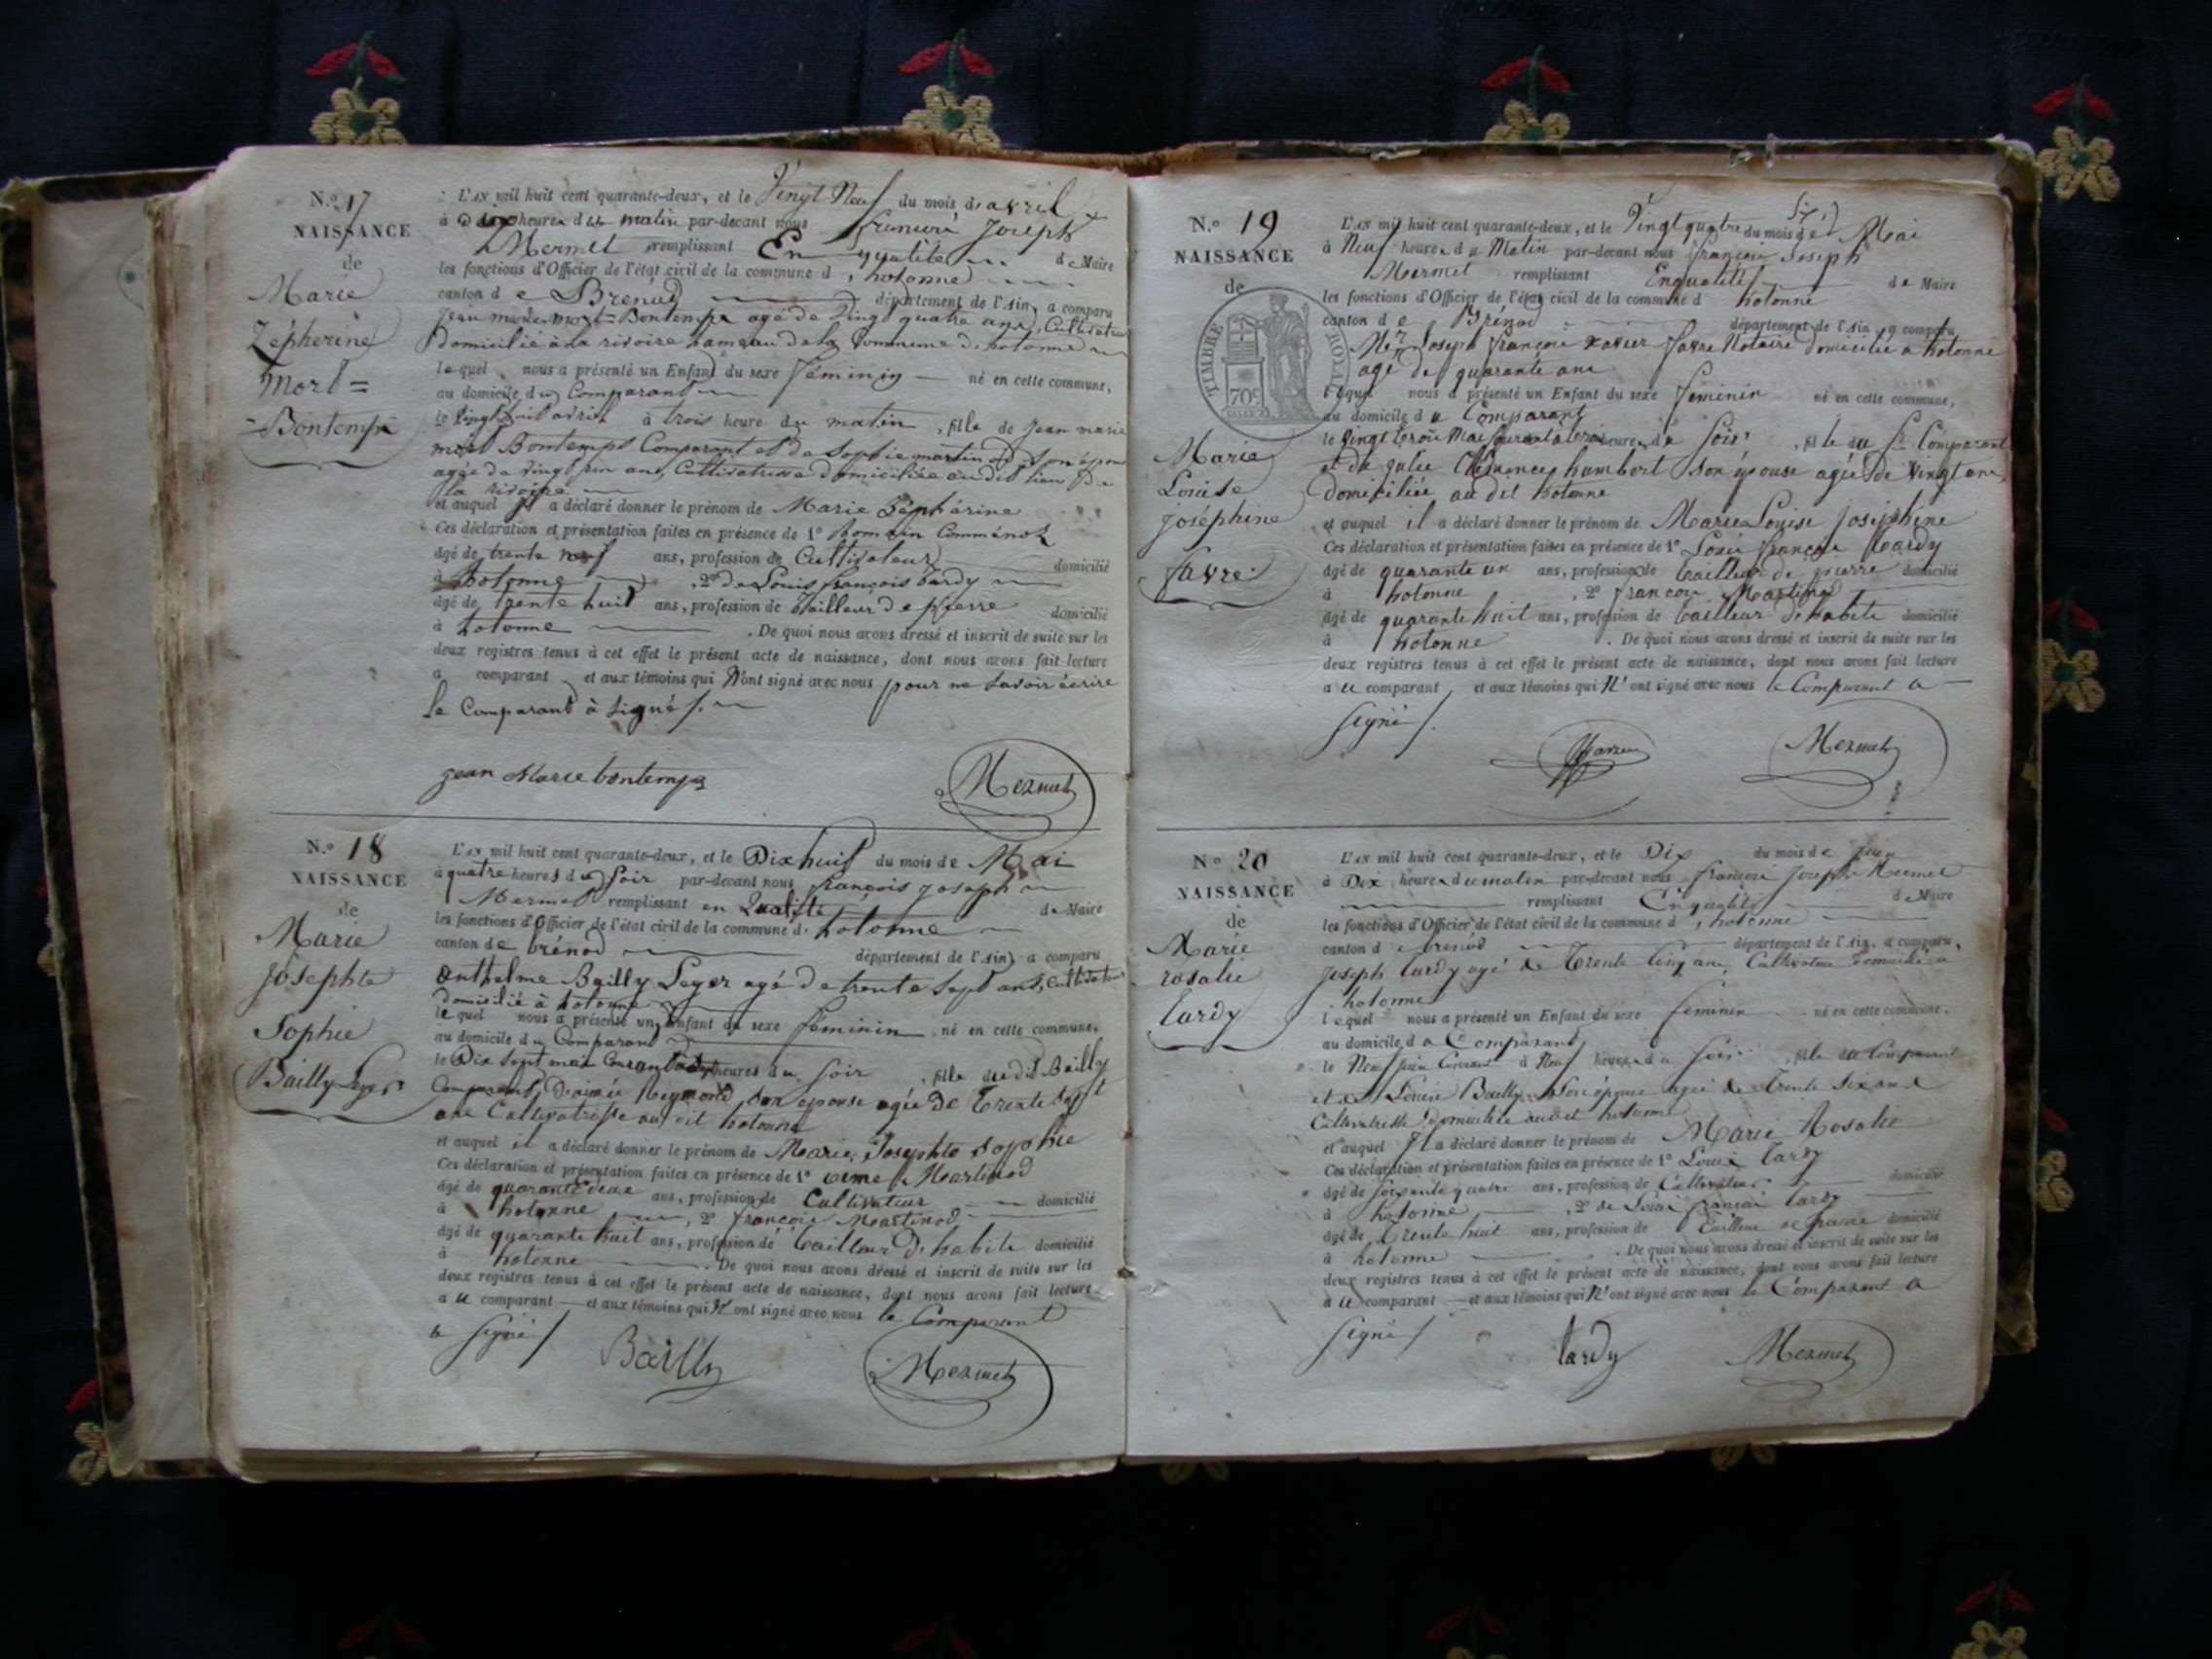 N.o 17
NAISSANCE
de
Marie
Zépherine
Mort=
=Bontemps
L'AN mil huit cent quarante-deux, et le Vingt Neuf du mois d avril
à heure du matin par-devant nous Joseph
Mermet remplissant En qualité de Maire
les fonctions d'Officier de l'état civil de la commune d hotonne
canton de Brénod département de l'Ain, a comparu
Jean marie mort=Bontemps agé de Vingt quatre ans, Cultivateur
Domicilié à la rivoire hameau de la Commune d. hotonne
lequel nous a présenté un Enfant du sexe féminin né en cette commune,
au domicile du Comparant
le Vingt huit avril à trois heure du matin, fille de Jean marie
mort Bontemps Comparant et de Sophie martin son épouse
agée de Vingt ans, Cultivatrice domiciliée au dit lieu de
la rivoire
et auquel il a déclaré donner le prénom de Marie Zéphérine
Ces déclaration et présentation faites en présence de 1° Romain
âgé de trente neuf ans, profession de Cultivateur domicilié
à hotonne, 2° de Louis françois tardy
âgé de trente huit ans, profession de tailleur de pierre domicilié
à hotonne. De quoi nous avons dressé et inscrit de suite sur les
deux registres tenus à cet effet le présent acte de naissance, dont nous avons fait lecture
a comparant et aux témoins qui N'ont signé avec nous pour ne savoir écrire
le Comparant à signé
jean Marie bontemps
Mermet
N.o 18
NAISSANCE
de
Marie
Josephte
Sophie
Bailly Leger
L'AN mil huit cent quarante-deux, et le Dix huit du mois de Mai
à quatre heures du soir par-devant nous françois joseph
Mermet remplissant en Qualité de Maire
les fonctions d'Officier de l'état civil de la commune d. hotonne
canton de brénod département de l'Ain, a comparu
Anthelme Bailly Leger agé de trente sept ans, Cultivateur
domicilié à hotonne
lequel nous a présenté un Enfant du sexe féminin né en cette commune,
au domicile du Comparant
le Dix sept mai Courant heures du soir, fille du dit Bailly
Comparant, Reymond son épouse agée de trente sept
ans Cultivatrice au dit hotonne
et auquel il a déclaré donner le prénom de Marie Josephte sophie
Ces déclaration et présentation faites en présence de 1° aimé Martinod
âgé de quarante deux ans, profession de Cultivateur domicilié
à hotonne, 2° françois Martinod
âgé de quarante huit ans, profession de tailleur d'habits domicilié
à hotonne. De quoi nous avons dressé et inscrit de suite sur les
deux registres tenus à cet effet le présent acte de naissance, dont nous avons fait lecture
au comparant et aux témoins qui N'ont signé avec nous le Comparant
a signé
Bailly
Mermet
N.o 19
NAISSANCE
de
TIMBRE ROYAL
70c
Marie
Louise
Joséphine
favre
L'AN mil huit cent quarante-deux, et le Vingt quatre du mois de Mai
à Neuf heures du Matin par-devant nous françois Joseph
Mermet remplissant En qualité de Maire
les fonctions d'Officier de l'état civil de la commune d hotonne
canton de Brénod département de l'Ain, a comparu
Joseph françois xavier favre Notaire domicilié a hotonne
agé de quarante ans
lequel nous a présenté un Enfant du sexe féminin né en cette commune,
au domicile du Comparant
le Vingt trois Mai Courant à trois heures du soir, fille du Sr Comparant
et de julie Clémence humbert son épouse agée de Vingt ans
domiciliée au dit hotonne
et auquel il a déclaré donner le prénom de Marie Louise joséphine
Ces déclaration et présentation faites en présence de 1° Louis françois tardy
âgé de quarante un ans, profession de tailleur de pierre domicilié
à hotonne, 2° françois Martinod
âgé de quarante huit ans, profession de tailleur d'habits domicilié
à hotonne. De quoi nous avons dressé et inscrit de suite sur les
deux registres tenus à cet effet le présent acte de naissance, dont nous avons fait lecture
au comparant, et aux témoins qui N'ont signé avec nous le Comparant a
signé
Mermet
N.o 20
NAISSANCE
de
Marie
rosalie
tardy
L'AN mil huit cent quarante-deux, et le Dix du mois de juin
à Dix heures du matin par-devant nous françois joseph Mermet
remplissant En qualité de Maire
les fonctions d'Officier de l'état civil de la commune d hotonne
canton d brenod département de l'Ain, a comparu,
joseph tardy agé de trente cinq ans, Cultivateur domicilié a
hotonne
lequel nous a présenté un Enfant du sexe féminin né en cette commune,
au domicile du Comparant
le Neuf juin Courant à Neuf heures du soir, fille du Comparant
et de Louise Bailly son épouse agée de trente six ans
Cultivatrice domiciliée au dit hotonne
et auquel il a déclaré donner le prénom de Marie Rosalie
Ces déclaration et présentation faites en présence de 1° Louis tardy
âgé de soixante quatre ans, profession de Cultivateur domicilié
à hotonne, 2° de Louis françois tardy
âgé de trente huit ans, profession de tailleur de pierre domicilié
à hotonne. De quoi nous avons dressé et inscrit de suite sur les
deux registres tenus à cet effet le présent acte de naissance, dont nous avons fait lecture
au comparant et aux témoins qui N'ont signé avec nous le Comparant a
signé
tardy
Mermet